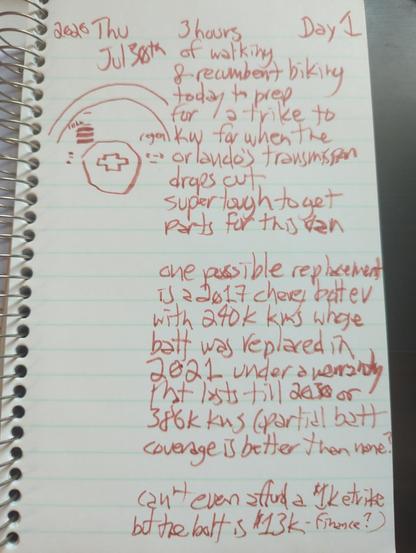 2026 Thu 3 hours Day 1
Jul 30th of walking
& recumbent biking
today to prep
for 1/a trike to
regen kw for when the
orlando's transmission
drops cut
super tough to get
parts for this van
one possible replacement
is a 2017 chevy bolt ev
with 240k kms whose
batt was replaced in
2021 under a warranty
tht lasts till 2030 or
386k kms (partial batt
coverage is better than none?
can't even afford a $1k etrike
but the bolt is $13k - finance?)